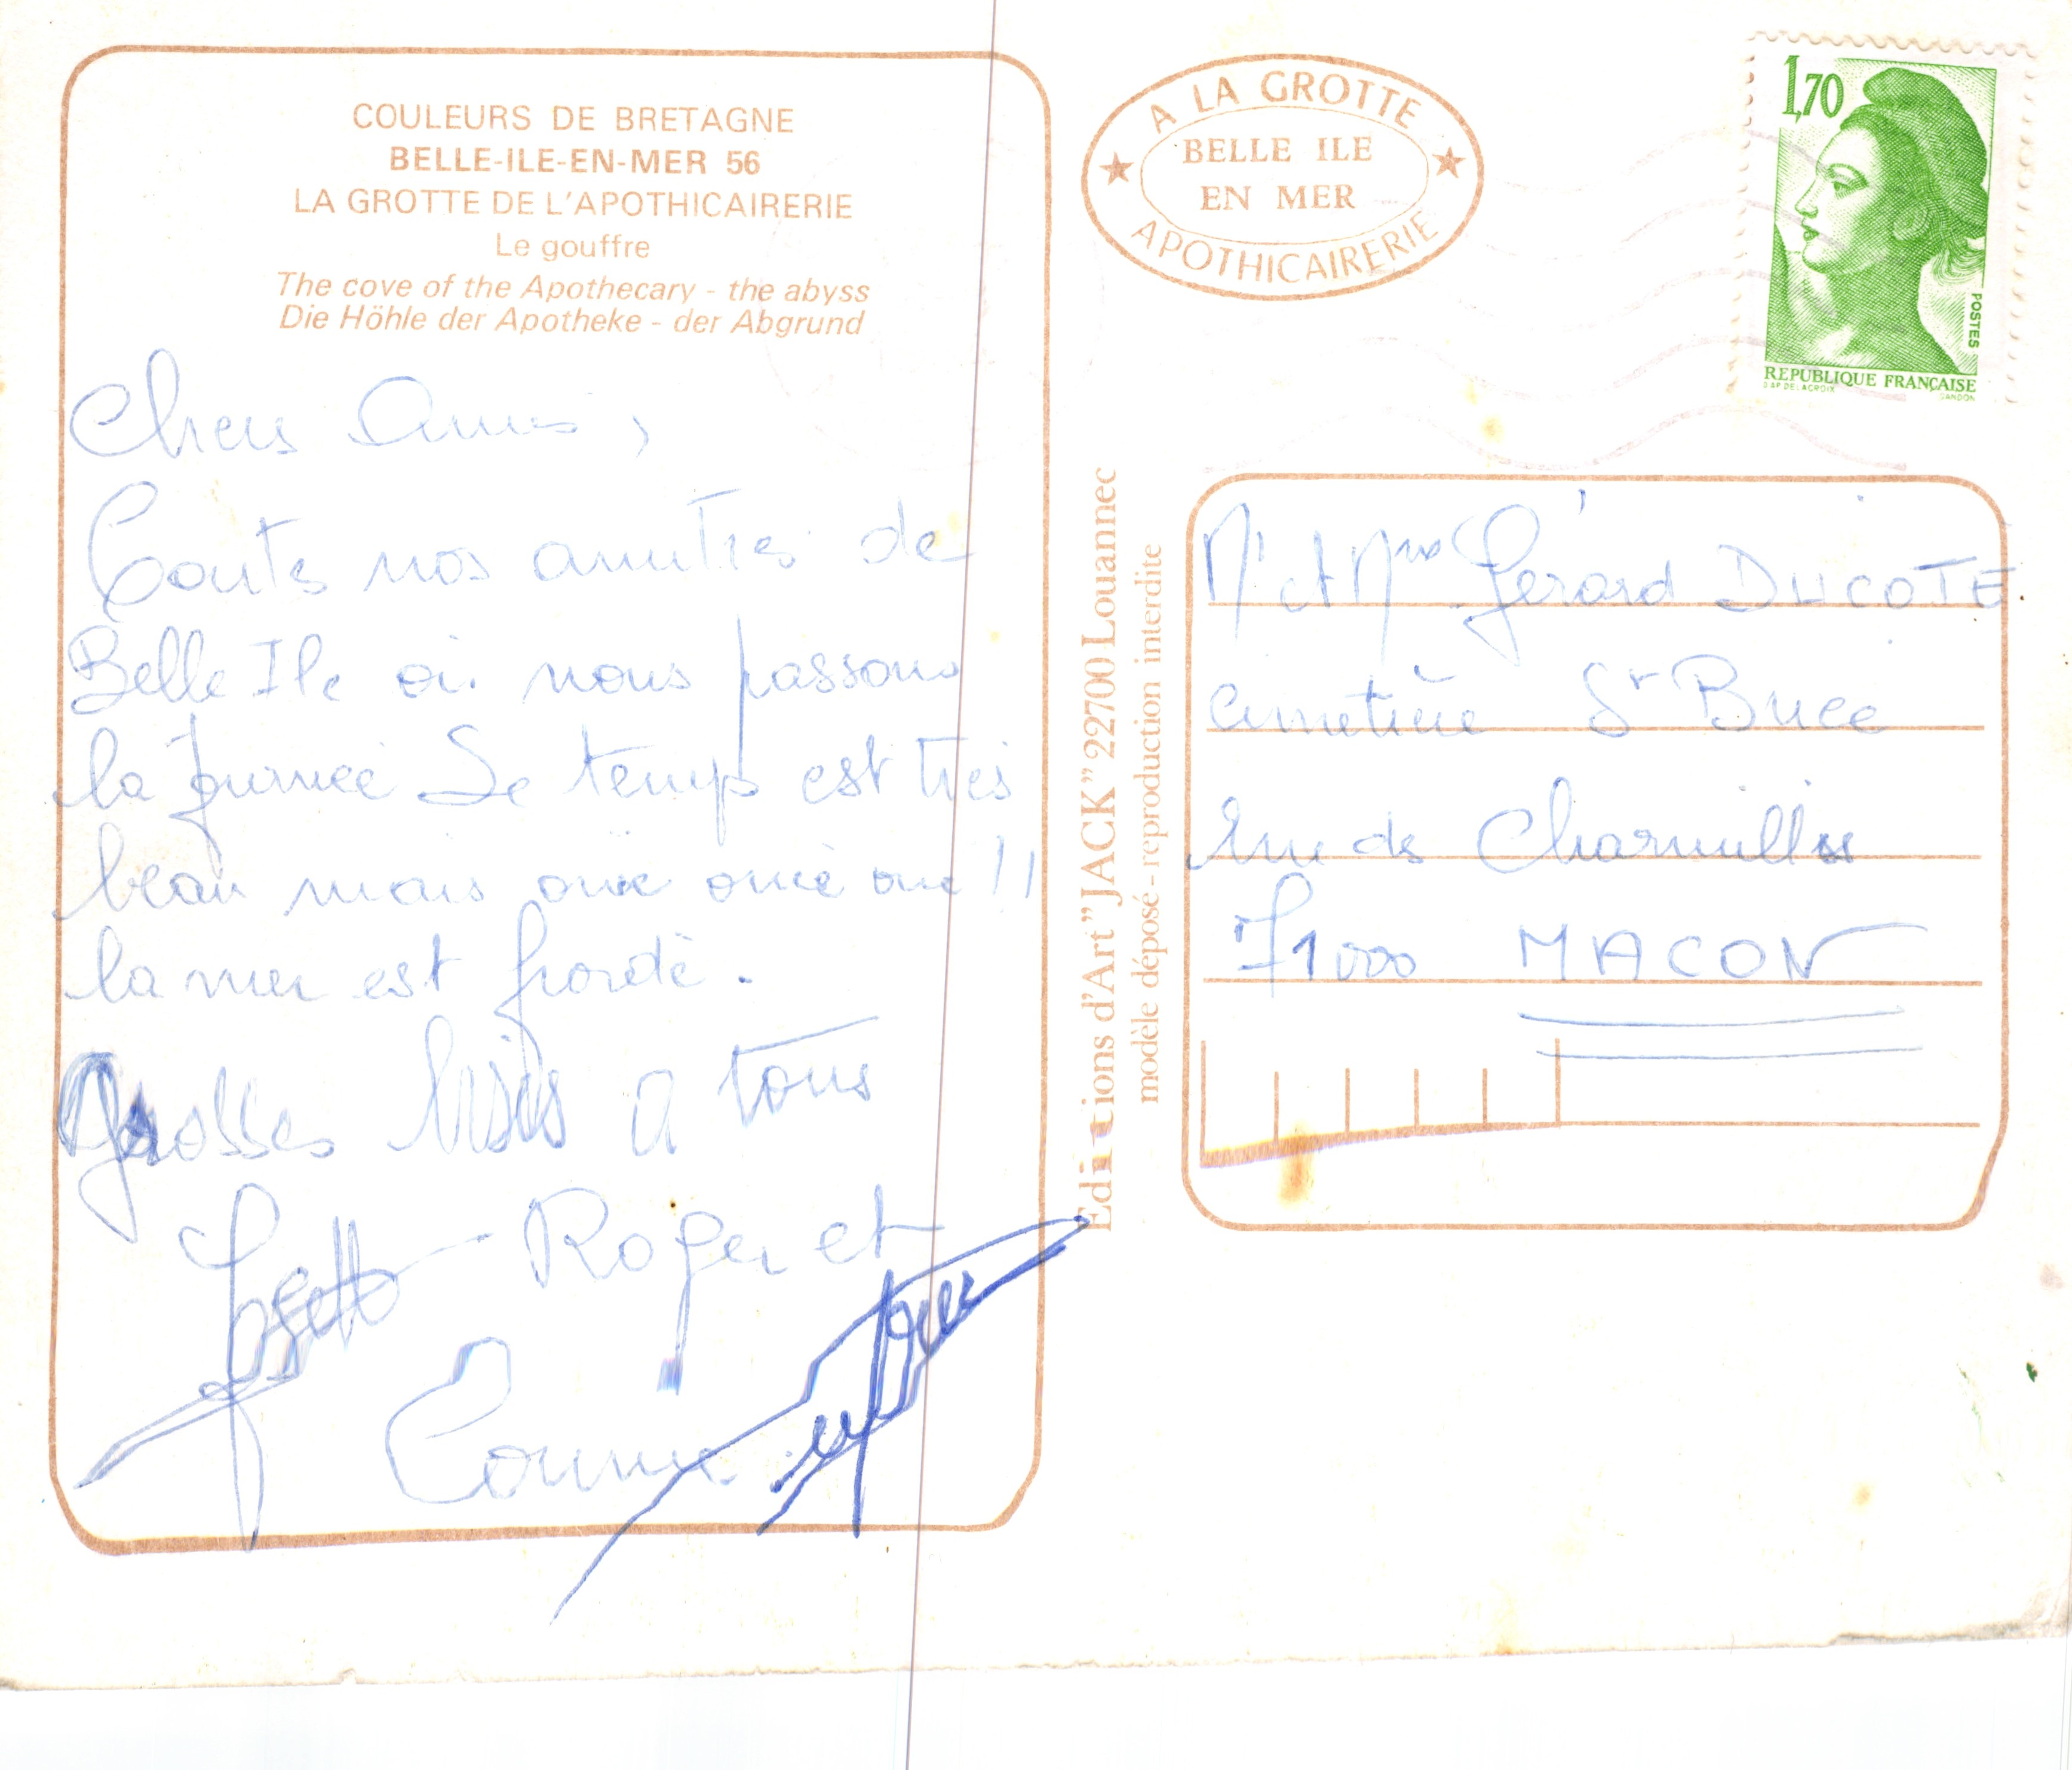 COULEURS DE BRETAGNE
BELLE-ILE-EN-MER 56
LA GROTTE DE L'APOTHICAIRERIE
Le gouffre
The cove of the Apothecary - the abyss
Die Höhle der Apotheke - der Abgrund
Chers Amis,
Toutes nos amitiés de
Belle Ile où nous passons
la journée Le temps est très
beau mais
la mer est froide.
Grosses bises a tous
Josette Roger et
Corinne
A LA GROTTE
BELLE ILE
EN MER
APOTHICAIRERIE
1,70
POSTES
REPUBLIQUE FRANÇAISE
D'AP DELACROIX
GANDON
Editions d'Art "JACK" 22700 Louannec
modèle déposé - reproduction interdite
Mr et Mme Gérard DUCOTE
cimetière St Brice
rue des Charmilles
71000 MACON